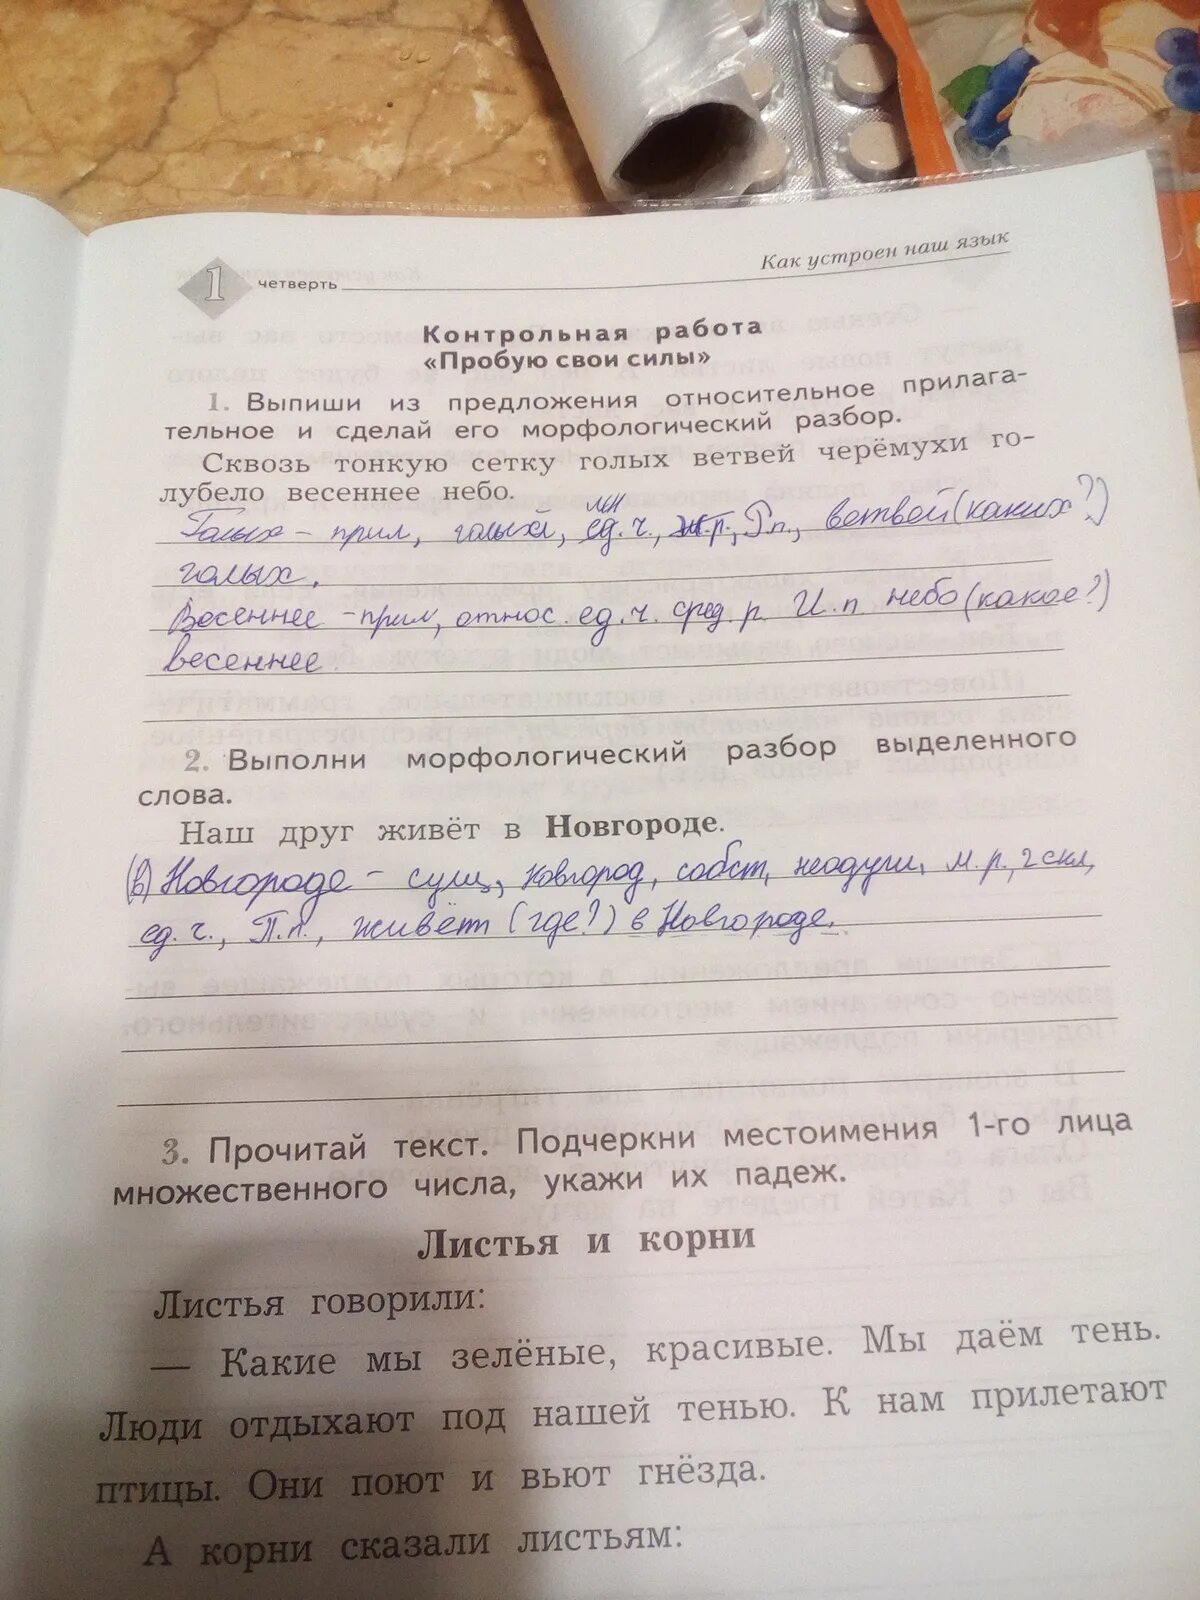 Как устроен наш язык
1 четверть
Контрольная работа
«Пробую свои силы»
1. Выпиши из предложения относительное прилага-
тельное и сделай его морфологический разбор.
Сквозь тонкую сетку голых ветвей черёмухи го-
лубело весеннее небо.
мн
Голых – прил, голый, ед.ч., ж.р., Р.п., ветвей (каких?)
голых.
Весеннее – прил, относ. ед.ч. сред. р. И.п небо (какое?)
весеннее.
2. Выполни морфологический разбор выделенного
слова.
Наш друг живёт в Новгороде.
(в) Новгороде – сущ, новгород, собст, неодуш, м.р, 2 скл,
ед.ч., П.п., живёт (где?) в Новгороде.
3. Прочитай текст. Подчеркни местоимения 1-го лица
множественного числа, укажи их падеж.
Листья и корни
Листья говорили:
— Какие мы зелёные, красивые. Мы даём тень.
Люди отдыхают под нашей тенью. К нам прилетают
птицы. Они поют и вьют гнёзда.
А корни сказали листьям: